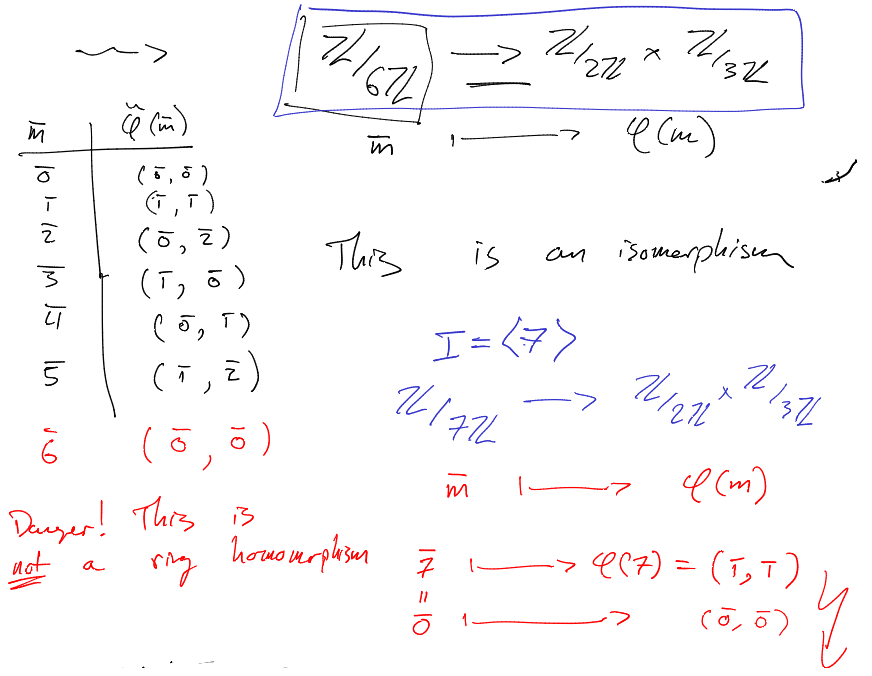 ⇝ ℤ/6ℤ → ℤ/2ℤ × ℤ/3ℤ
m̄ ↦ φ(m)
m̄ | φ̃(m̄)
0̄ | (0̄, 0̄)
1̄ | (1̄, 1̄)
2̄ | (0̄, 2̄)
3̄ | (1̄, 0̄)
4̄ | (0̄, 1̄)
5̄ | (1̄, 2̄)
6̄ (0̄, 0̄)
This is an isomorphism
I = ⟨7⟩
ℤ/7ℤ → ℤ/2ℤ × ℤ/3ℤ
m̄ ↦ φ(m)
Danger! This is
not a ring homomorphism
7̄ ↦ φ(7) = (1̄, 1̄)
=
0̄ ↦ (0̄, 0̄) ↯